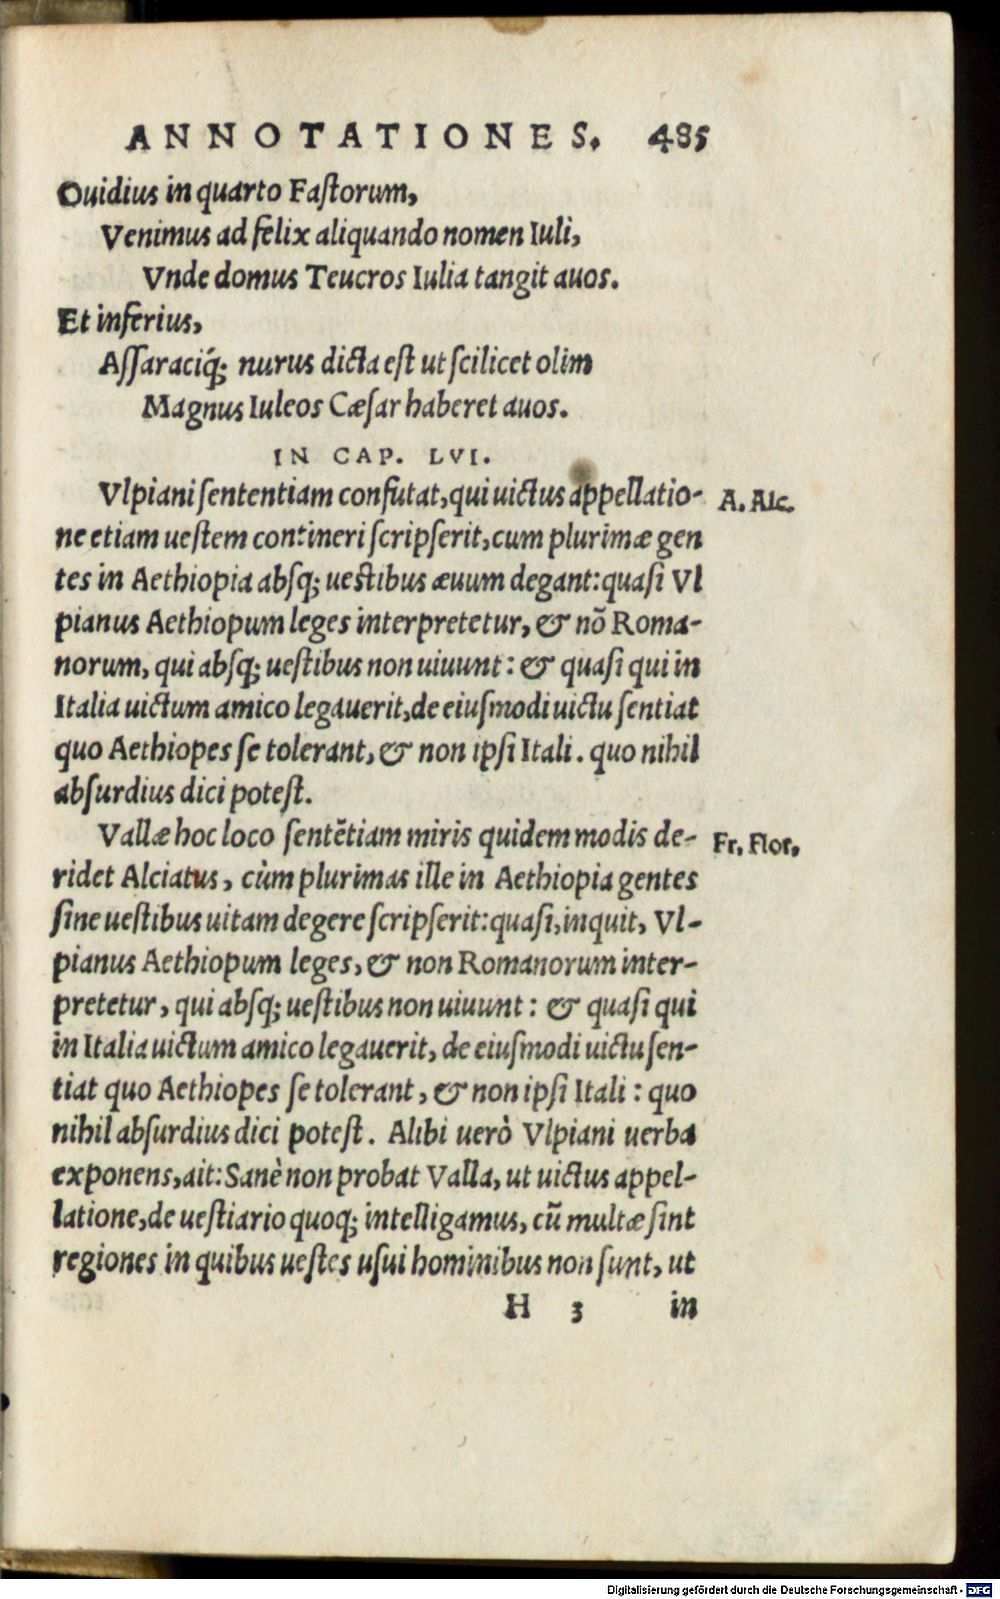 ANNOTATIONES. 485
Ouidius in quarto Fastorum,
Venimus ad felix aliquando nomen Iuli,
Vnde domus Teucros Iulia tangit auos.
Et inferius,
Assaraciq́; nurus dicta est ut scilicet olim
Magnus Iuleos Cæsar haberet auos.
IN CAP. LVI.
Vlpiani sententiam confutat, qui uictus appellatio- A. Alc.
ne etiam uestem contineri scripserit, cum plurimæ gen
tes in Aethiopia absq; uestibus æuum degant: quasi Vl
pianus Aethiopum leges interpretetur, & nõ Roma-
norum, qui absq; uestibus non uiuunt: & quasi qui in
Italia uictum amico legauerit, de eiusmodi uictu sentiat
quo Aethiopes se tolerant, & non ipsi Itali. quo nihil
absurdius dici potest.
Vallæ hoc loco sentẽtiam miris quidem modis de- Fr. Flor.
ridet Alciatus, cùm plurimas ille in Aethiopia gentes
sine uestibus uitam degere scripserit: quasi, inquit, Vl-
pianus Aethiopum leges, & non Romanorum inter-
pretetur, qui absq; uestibus non uiuunt: & quasi qui
in Italia uictum amico legauerit, de eiusmodi uictu sen-
tiat quo Aethiopes se tolerant, & non ipsi Itali: quo
nihil absurdius dici potest. Alibi uerò Vlpiani uerba
exponens, ait: Sanè non probat Valla, ut uictus appel-
latione, de uestiario quoq; intelligamus, cũ multæ sint
regiones in quibus uestes usui hominibus non sunt, ut
H 3 in
Digitalisierung gefördert durch die Deutsche Forschungsgemeinschaft - DFG